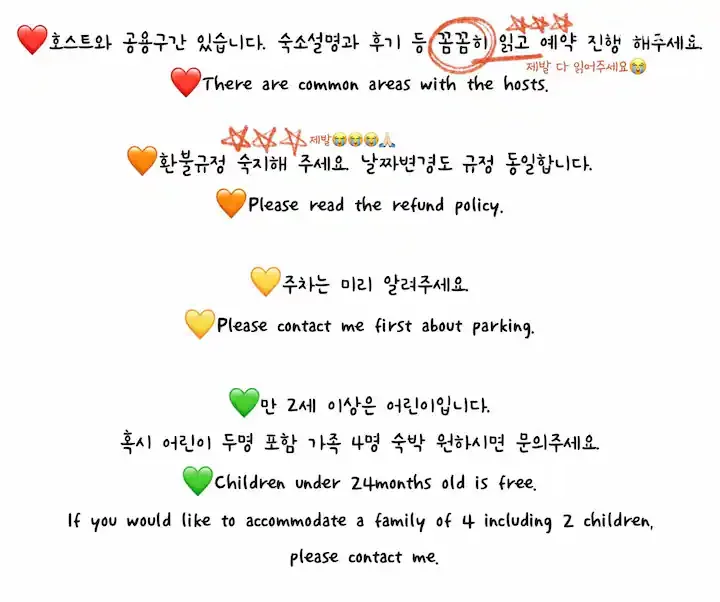 ❤️호스트와 공용구간 있습니다. 숙소설명과 후기 등 꼼꼼히 읽고 예약 진행 해주세요.
제발 다 읽어주세요😭
❤️There are common areas with the hosts.
제발😭😭😭🙏🏻
🧡환불규정 숙지해 주세요. 날짜변경도 규정 동일합니다.
🧡Please read the refund policy.
💛주차는 미리 알려주세요.
💛Please contact me first about parking.
💚만 2세 이상은 어린이입니다.
혹시 어린이 두명 포함 가족 4명 숙박 원하시면 문의주세요.
💚Children under 24months old is free.
If you would like to accommodate a family of 4 including 2 children,
please contact me.